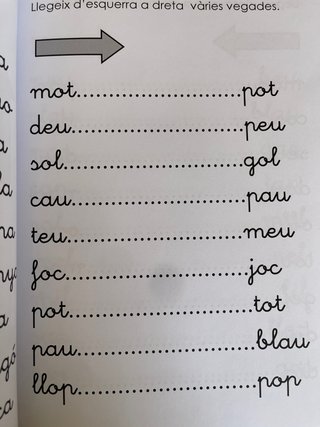 Llegeix d'esquerra a dreta vàries vegades.
mot...........................pot
deu...........................peu
sol...........................gol
cau...........................pau
teu...........................meu
foc...........................joc
pot...........................tot
pau...........................blau
llop...........................pop